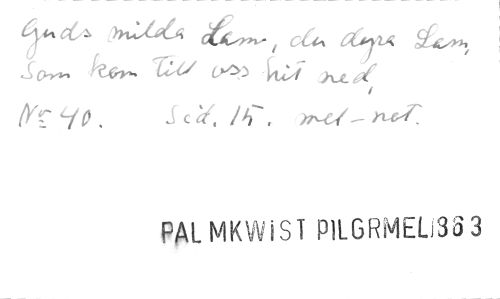 Guds milda Lam, du dyra Lam,
Som kom till oss hit ned,
No 40. Sid. 15. mel-not.
PALMKWiST PILGRMEL/1363